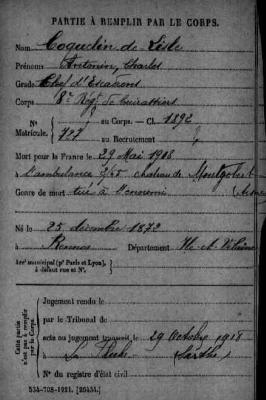 PARTIE À REMPLIR PAR LE CORPS.
Nom Coquelin de Lisle
Prénoms Antonin, Charles
Grade Chef d'Escadrons
Corps 8e Régt de Cuirassiers
N° Matricule. 727 au Corps. — Cl. 1892
au Recrutement
Mort pour la France le 29 Mai 1918
à l'ambulance château de Montgobert
(Aisne)
Genre de mort tué à l'ennemi
Né le 25 décembre 1872
à Rennes Département Ille-et-Vilaine
Arrt municipal (pr Paris et Lyon), à défaut rue et N°.
Cette partie n'est pas à remplir par le Corps.
Jugement rendu le
par le Tribunal de
acte ou jugement transcrit le 29 Octobre 1918
à La Flèche (Sarthe)
N° du registre d'état civil
534-708-1921. [26434.]